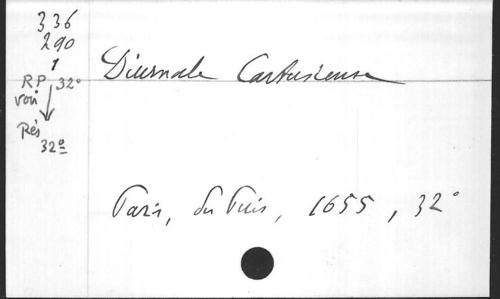 336
290
1
RP 32°
voir
Rés
32º
Diurnale Cartusiense
Paris, du Puis, 1655, 32°